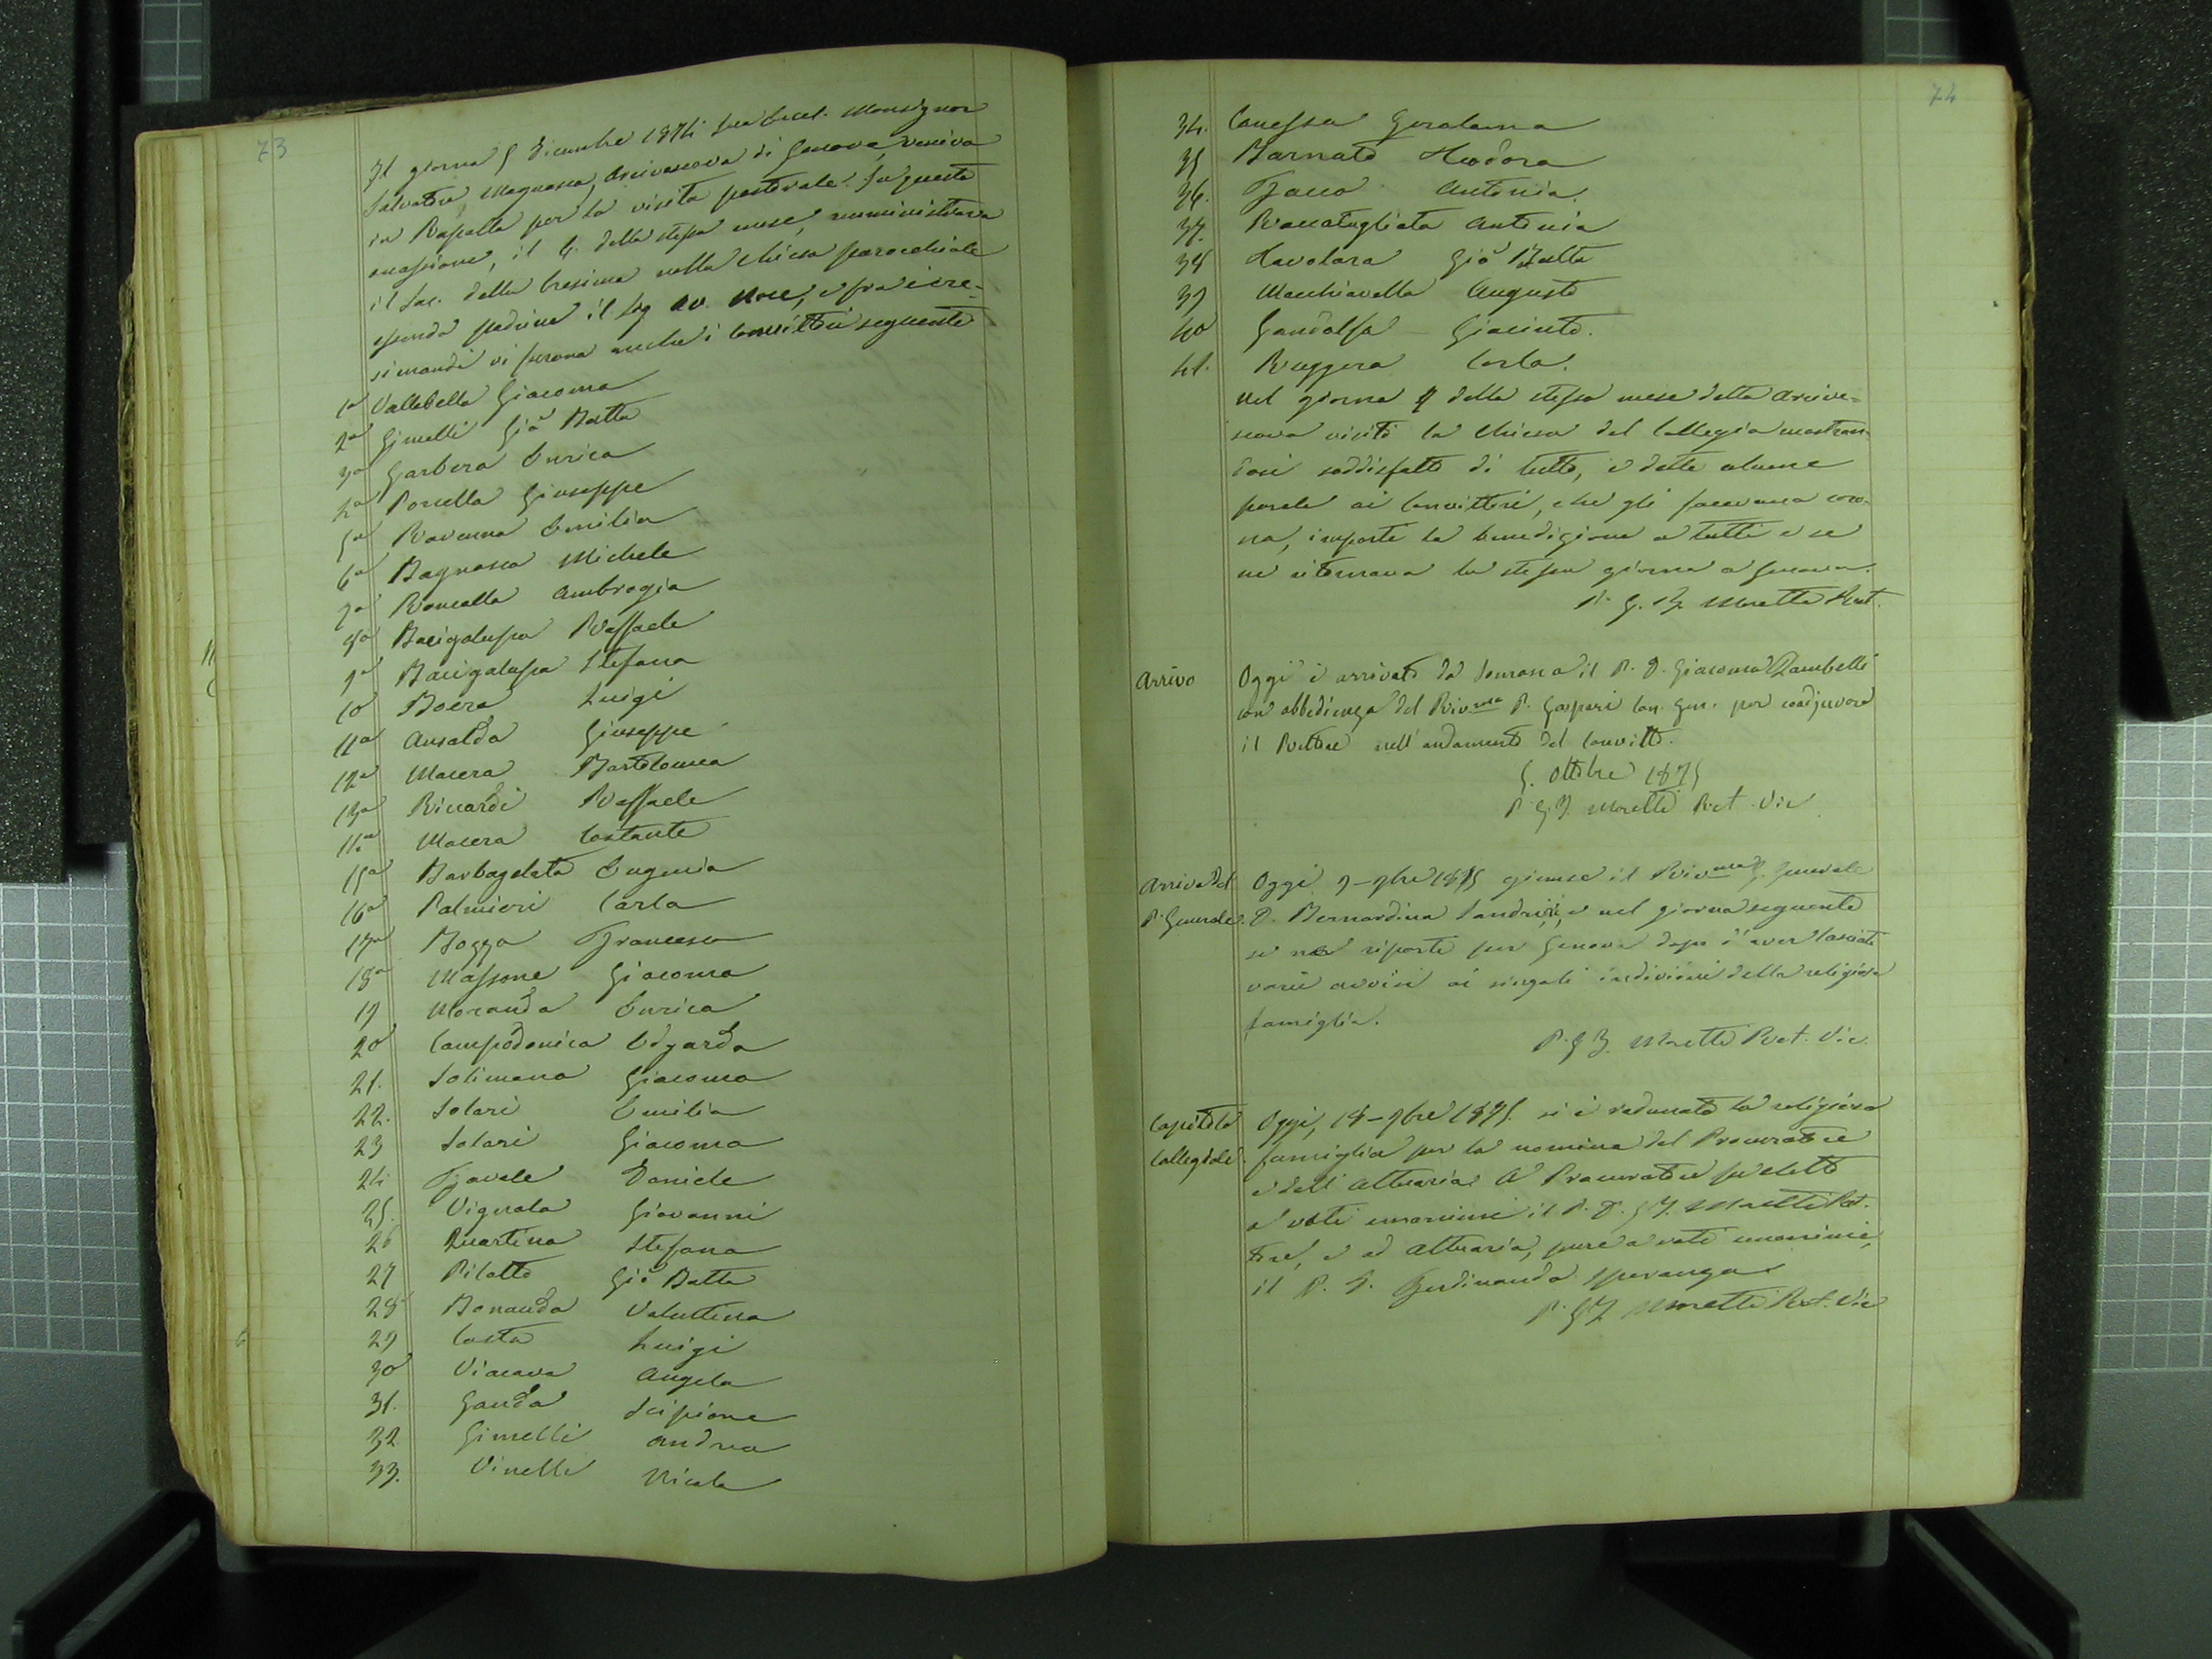 73
Il giorno 5 Dicembre 1874 Sua Eccel. Monsignor
Salvatore Magnasco, Arcivescovo di Genova, veniva
in Rapallo per la visita pastorale. In questa
occasione, il 6. dello stesso mese, amministrava
il Sac. della Cresima nella chiesa parocchiale
essendo padrino il Sig Av. Noce, e fra i cre-
simandi vi furono anche i convittori seguenti
1o Vallebella Giacomo
2o Gimelli Gio Batta
3o Garbero Enrico
4o Porcella Giuseppe
5o Ravenna Emilio
6o Bagnasco Michele
7o Roncallo Ambrogio
8o Bacigalupo Raffaele
9o Bacigalupo Stefano
10 Boero Luigi
11o Ansaldo Giuseppe
12o Macera Bartolomeo
13o Riccardi Raffaele
14o Macera Costante
15o Barbagelata Eugenio
16o Palmieri Carlo
17o Bozzo Francesco
18o Massone Giacomo
19 Morando Enrico
20 Campodonico Edgardo
21. Solimano Giacomo
22. Solari Emilio
23 Solari Giacomo
24 Favale Daniele
25. Vignolo Giovanni
26 Quartino Stefano
27 Pilotto Gio Batta
28 Bonando Valentino
29 Costa Luigi
30 Viacava Angelo
31. Gando Scipione
32 Gimelli Andrea
33. Vinelli Nicola
74
34. Canessa Gerolamo
35 Barnato Teodoro
36. Fano Antonio.
37. Roccatagliata Antonio
38 Tavolara Gio Batta
39 Macchiavello Augusto
40 Gandolfo Giacinto.
41. Ruggero Carlo.
Nel giorno 7 dello stesso mese detto Arcive-
scovo visitò la Chiesa del Collegio mostran-
dosi soddisfatto di tutto, e dette alcune
parole ai Convittori, che gli facevano coro-
na, impartì la benedizione a tutti e se
ne ritornava lo stesso giorno a Genova.
P. G. B. Moretti Ret.
Arrivo
Oggi è arrivato da Somasca il P. D. Giacomo Zambelli
con obbedienza del Rev.mo P. Gaspari Can. Gen. per coadjuvare
il Rettore nell'andamento del Convitto.
5. Ottobre 1875
P. G. B. Moretti Ret. Vic
Arrivo del
P. Generale.
Oggi 9-9bre 1875 giunse il Rev.mo P. Generale
D. Bernardino Sandrini, e nel giorno seguente
se ne riparte per Genova dopo d'aver lasciate
varii avvisi ai singoli individui della religiosa
famiglia.
P. G B. Moretti Ret. Vic.
Capitolo
Collegiale.
Oggi, 18-9bre 1875. si è radunata la religiosa
famiglia per la nomina del Procuratore
e dell'Attuario. A Procuratore fu eletto
a voti unanimi il P. D. G B. Moretti Ret-
tore, e ad Attuario, pure a voti unanimi,
il P. D. Ferdinando Speranza
P. G B Moretti Ret. Vic